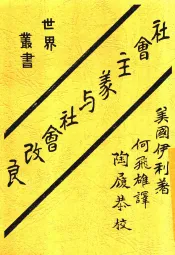 世界叢書
社會主義与社會改良
美國伊利著
何飛雄譯
陶履恭校